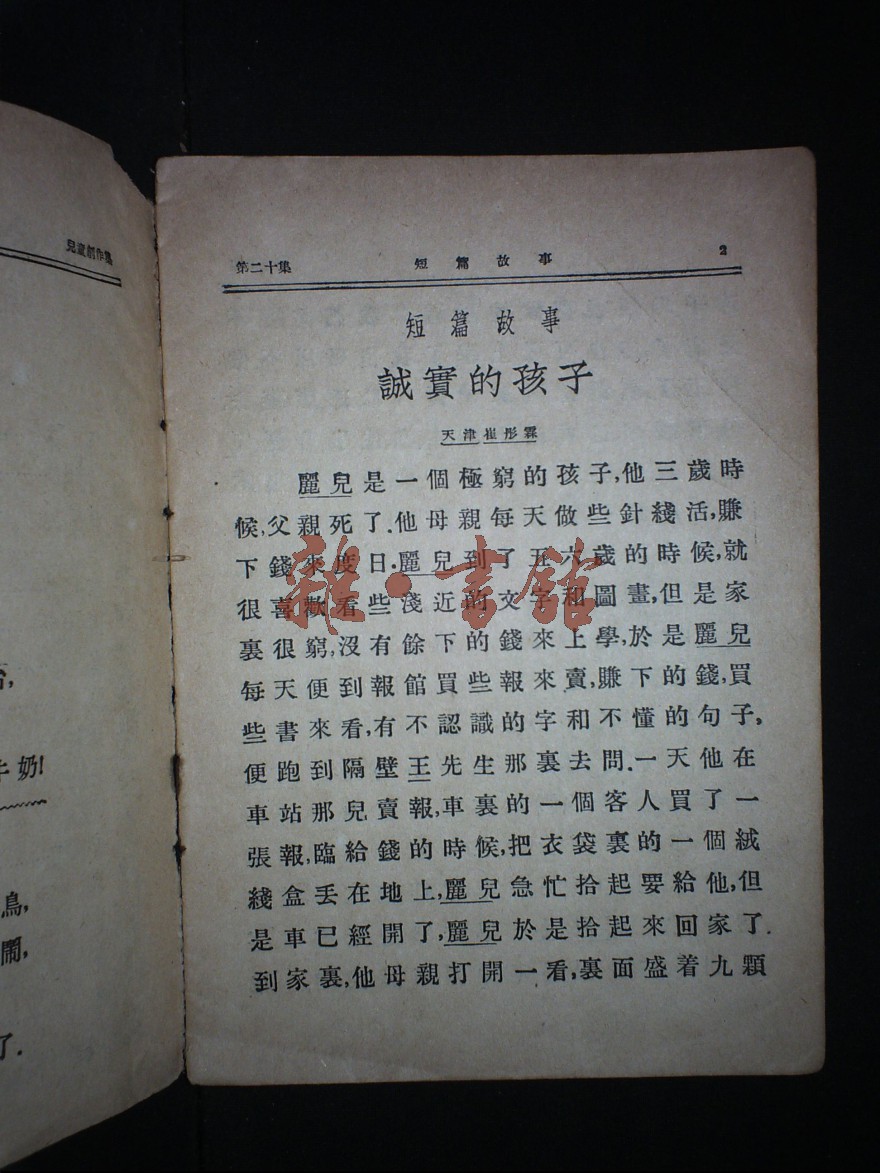 兒童創作集
台,
牛奶!
鳥,
鬧,
了.
第二十集 短篇故事 2
短篇故事
誠實的孩子
天津崔彤霖
麗兒是一個極窮的孩子,他三歲時
候,父親死了.他母親每天做些針綫活,賺
下錢來度日.麗兒到了五六歲的時候,就
很喜歡看些淺近的文字和圖畫,但是家
裏很窮,沒有餘下的錢來上學,於是麗兒
每天便到報館買些報來賣,賺下的錢,買
些書來看,有不認識的字和不懂的句子,
便跑到隔壁王先生那裏去問.一天他在
車站那兒賣報,車裏的一個客人買了一
張報,臨給錢的時候,把衣袋裏的一個絨
綫盒丟在地上,麗兒急忙拾起要給他,但
是車已經開了,麗兒於是拾起來回家了.
到家裏,他母親打開一看,裏面盛着九顆
雜·書館